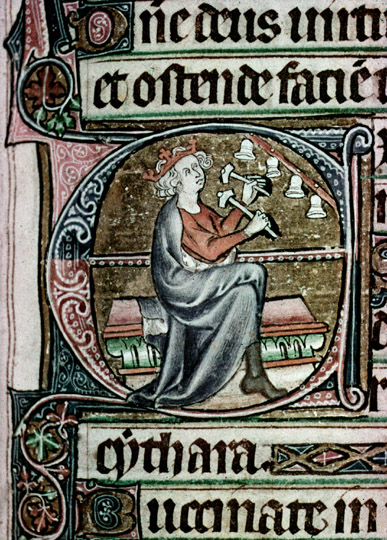 Dn̄e deus uirtu
et ostende faciē
E
cẏthara.
Buccinate in